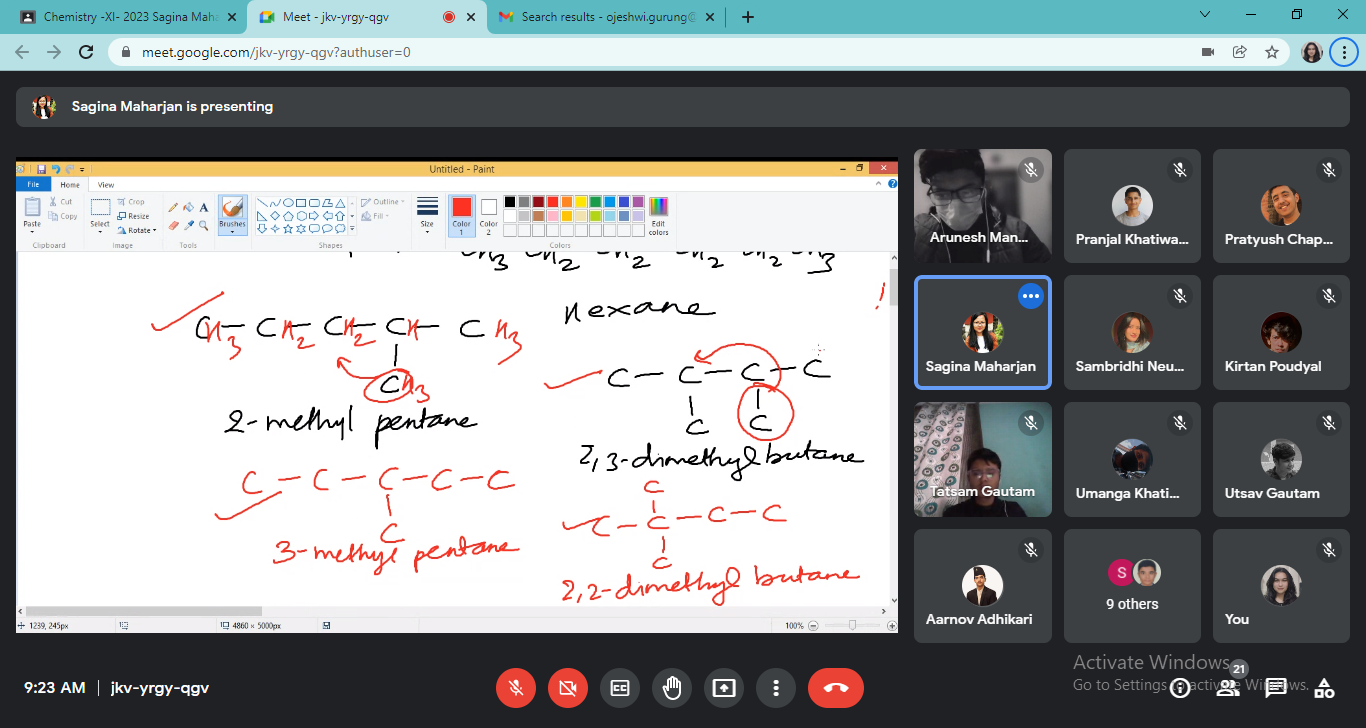 Chemistry -XI- 2023 Sagina Maha
Meet - jkv-yrgy-qgv
Search results - ojeshwi.gurung@
meet.google.com/jkv-yrgy-qgv?authuser=0
Sagina Maharjan is presenting
Untitled - Paint
File Home View
Paste
Cut
Copy
Clipboard
Select
Crop
Resize
Rotate
Image
A
Tools
Brushes
Shapes
Outline
Fill
Size
Color 1
Color 2
Edit colors
Colors
CH3 CH2 CH2 CH2 CH2 CH3
Hexane
CH3 – CH2 – CH2 – CH – CH3
CH3
2-methyl pentane
C – C – C – C
C C
2,3-dimethyl butane
C – C – C – C – C
C
3-methyl pentane
C
C – C – C – C
C
2,2-dimethyl butane
!
1239, 245px
4860 × 5000px
100%
Arunesh Man...
Pranjal Khatiwa...
Pratyush Chap...
Sagina Maharjan
Sambridhi Neu...
Kirtan Poudyal
Tatsam Gautam
Umanga Khati...
Utsav Gautam
Aarnov Adhikari
S
9 others
You
9:23 AM | jkv-yrgy-qgv
CC
Activate Windows
Go to Settings to activate Windows.
21